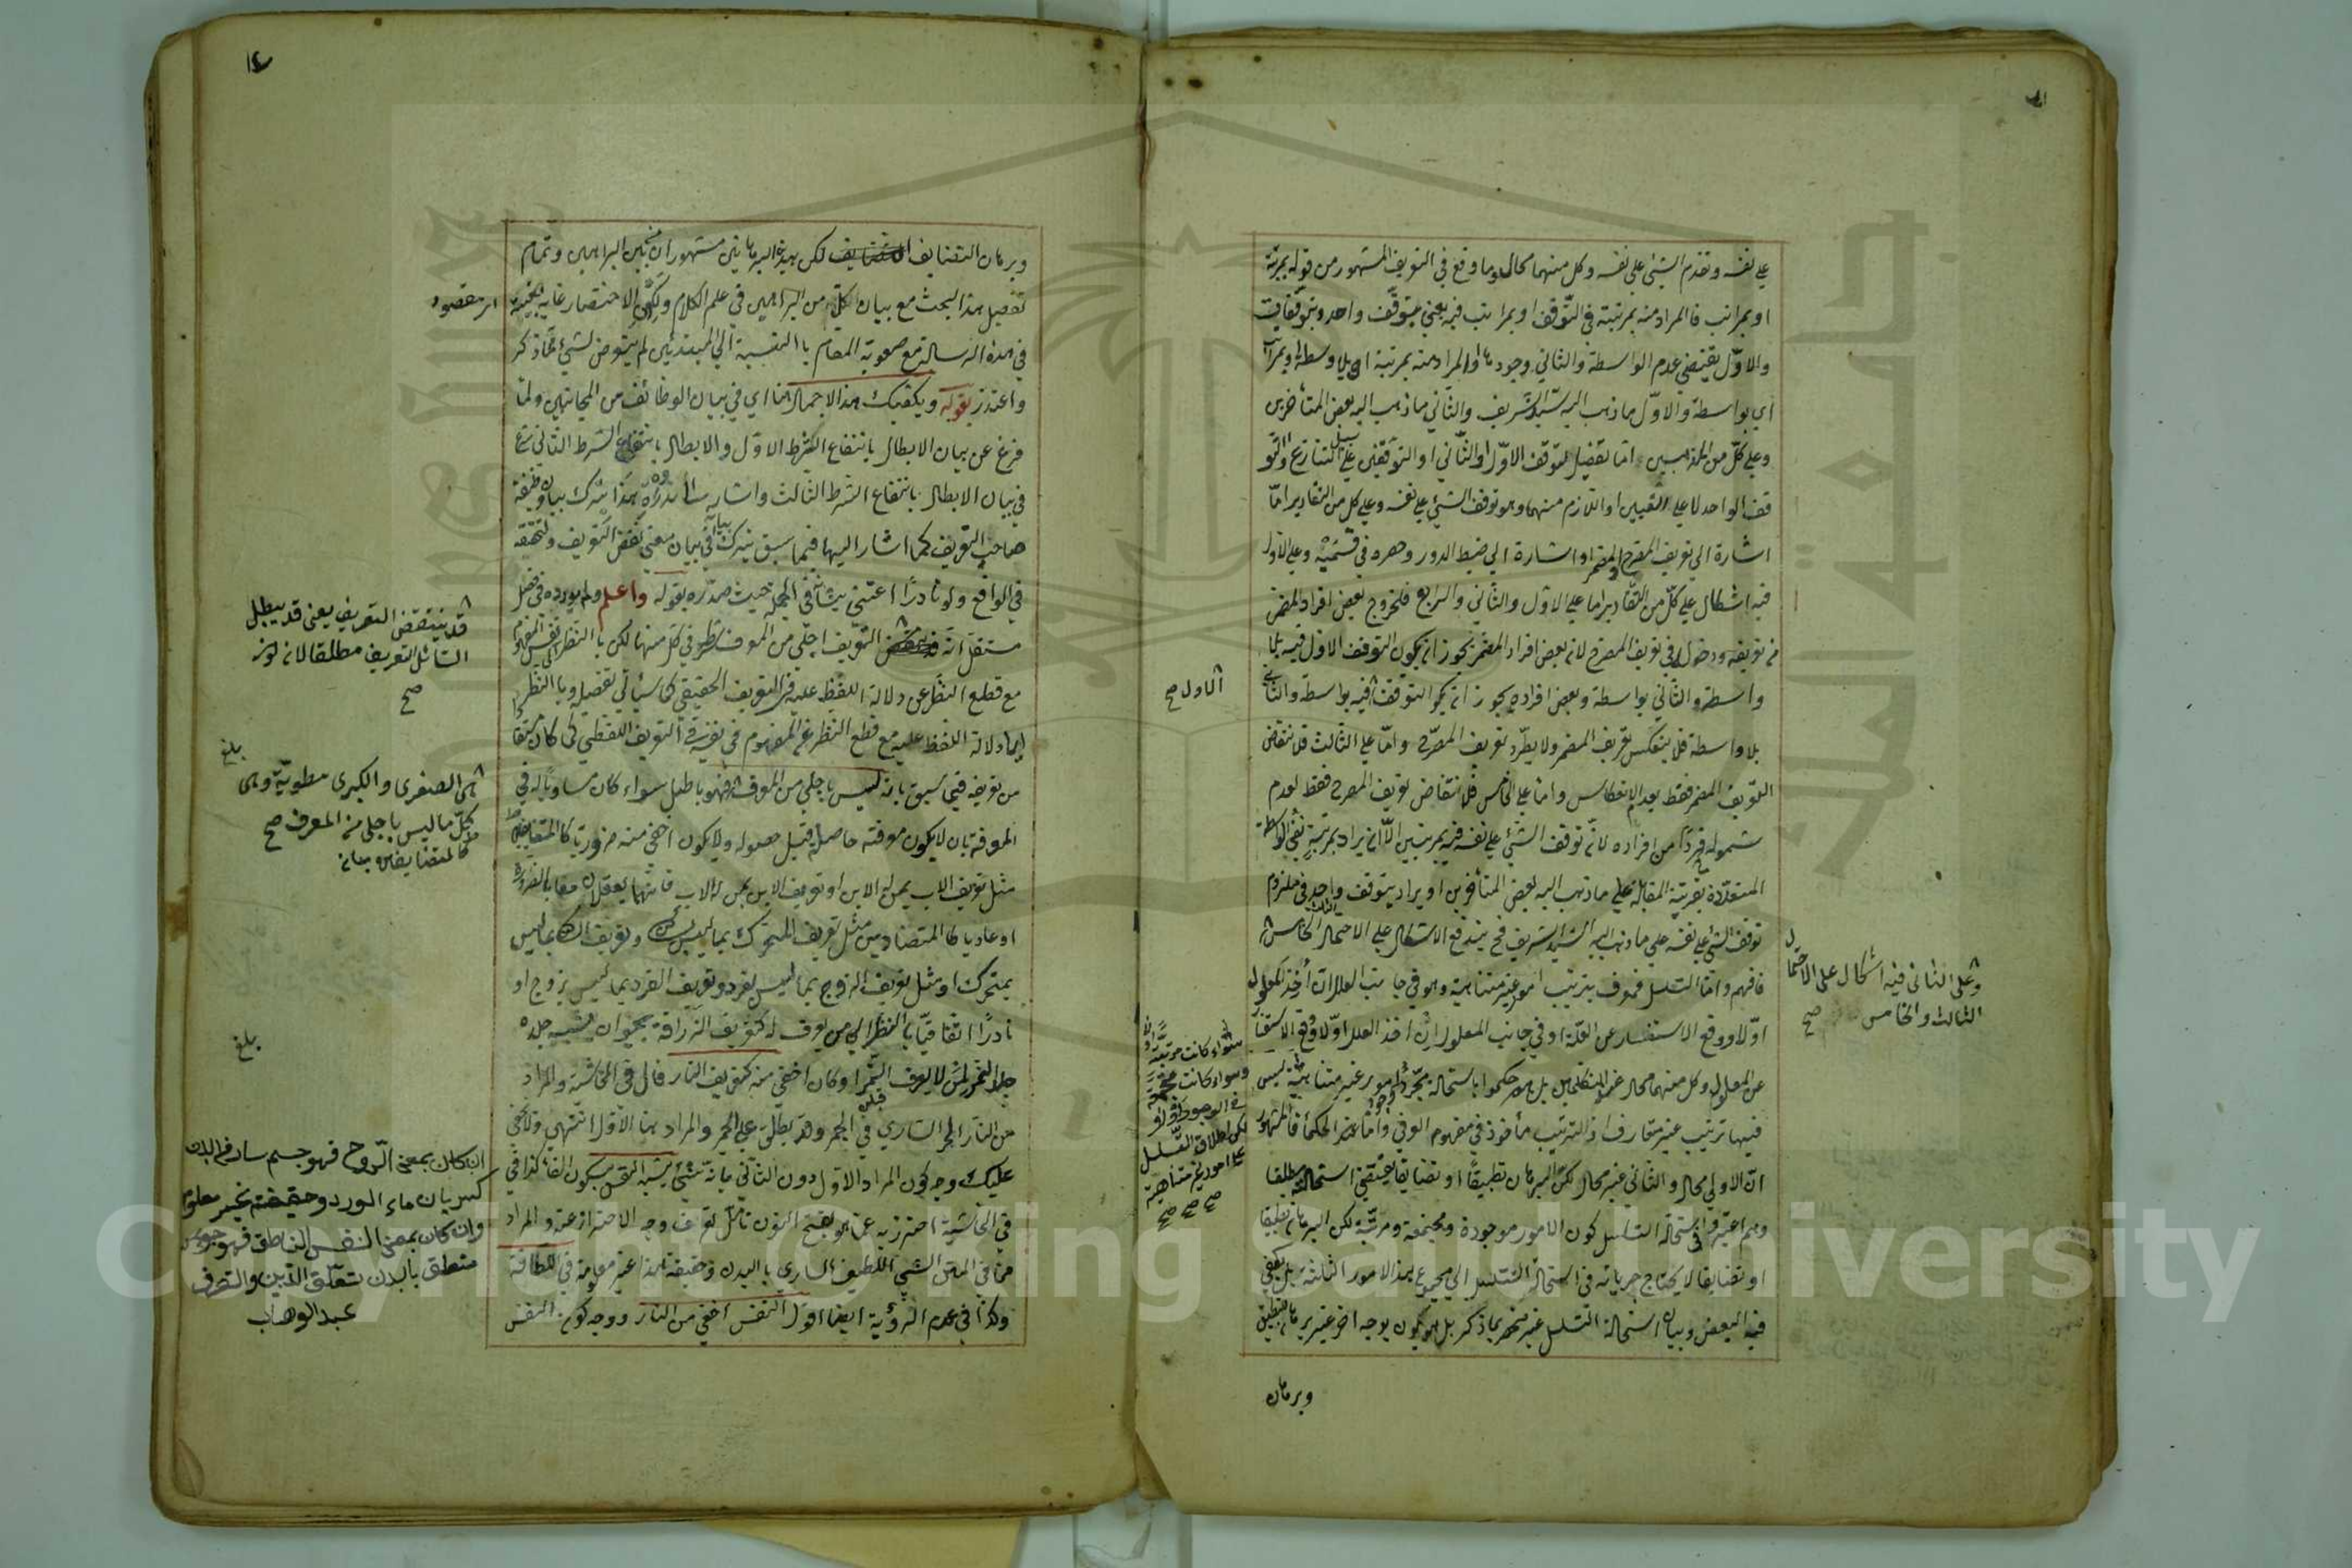 على نفسه وتقدم الشئ على نفسه وكل منهما محال وما وقع في التعريف المشهور من قوله بمرتبة
او بمراتب فالمراد منه بمرتبة في التوقف او بمراتب فيه يعني بتوقف واحد وبتوقفات
والاول يقتضي عدم الواسطة والثاني وجودها او المراد منه بمرتبة اي بلا وسط او بمراتب
اي بواسطة والاول ما ذهب اليه سيد الشريف والثاني ما ذهب اليه بعض المتأخرين
وعلى كل من المذهبين اما تفصيل لتوقف الاول او الثاني او التوقفين على سبيل التنازع او التو
قف الواحد لا على التعيين او اللازم منهما وهو توقف الشئ على نفسه وعلى كل من التقادير اما
اشارة الى تعريف المصرح او المضمر او اشارة الى ضبط الدور وحصره في قسميه وعلى الاول
فيه اشكال على كل من التقادير اما على الاول والثاني والرابع فلخروج بعض افراد المضمر
من تعريفه ودخوله في تعريف المصرح لان بعض افراد المضمر يجوز ان يكون التوقف الاول فيه بلا
واسطة والثاني بواسطة وبعض افراده يجوز ان يكون التوقف فيه بواسطة والثاني
الاول صح
بلا واسطة فلا ينعكس تعريف المضمر ولا يطرد تعريف المصرح واما على الثالث فلانتقاض
التعريف المضمر فقط بعدم الانعكاس واما على الخامس فلانتقاض تعريف المصرح فقط لعدم
شموله فردا من افراده لان توقف الشئ على نفسه فيه بمرتبتين الا ان يراد بمرتبة نفي الواسطة
المتعددة بقرينة المقابلة على ما ذهب اليه بعض المتأخرين او يراد بتوقف واحد في ملزوم
توقف الشئ على نفسه على ما ذهب اليه السيد الشريف فح يندفع الاشكال على الاحتمال الخامس
وعلى الثاني فيه اشكال على الاحتمال
الثالث والخامس صح
فافهم واما التسلسل فمعرف بترتيب امور غير متناهية وهو في جانب العلل ان أخذ المعلول
اولا ووقع الاستفسار عن العلة او في جانب المعلول ان اخذ العلل اولا ووقع الاستفسار
عن المعلول وكل منهما محال عند المتكلمين بل هم حكموا باستحالة مجرد امور غير متناهية ليس
فيها ترتيب غير متعارف اذ الترتيب مأخوذ في مفهوم العرفي واما عند الحكماء فالمشهور
ان الاولى محال والثاني غير محال لكن البرهان تطبيقا او تضايفا يقتضي استحالته مطلقا
وهم اعتبروا في استحالة التسلسل كون الامور موجودة ومجتمعة ومرتبة لكن البرهان تطبيقا
او تضايفا لا يحتاج جريانه في استحالة التسلسل الى مجموع هذه الامور الثلثة بل يكفي
فيه البعض وبيان استحالة التسلسل غير منحصر بما ذكر بل هو يكون بوجه اخر غير برهان التطبيق
سواء كانت مرتبة اولا
وسواء كانت مجتمعة
في الوجود اولا
لكن اطلاق التسلسل
على امور غير متناهية
صح صح صح
وبرهان
وبرهان التضايف لكن هذه البرهانين مشهوران من بين البراهين وتمام
تفصيل هذا البحث مع بيان كل من البراهين في علم الكلام ولكون الاختصار غاية
في هذه الرسالة مع صعوبة المقام بالنسبة الى المبتدئين لم يتعرض لشئ مما ذكر
واعتذر بقوله ويكفيك هذا الاجمال هنا اي في بيان الوظائف من الجانبين ولما
فرغ عن بيان الابطال بانتفاء الشرط الاول والابطال بانتفاء الشرط الثاني شرع
في بيان الابطال بانتفاء الشرط الثالث واشار
صاحب التعريف كما اشار اليها فيما سبق بترك بيانها في بيان معنى نقض التعريف ولتحققه
في الواقع ولو نادرا اعتنى بشأنه في الجملة حيث صدره بقوله واعلم ولم يورده في فصل
مستقل انه التعريف اجلى من المعرف
قد ينتقض التعريف يعني قد يبطل
السائل التعريف مطلقا لان لونه
صح
مع قطع النظر عن دلالة اللفظ عليه في التعريف الحقيقي كما سيأتي تفصيله وبالنظر
الى دلالة اللفظ عليه مع قطع النظر عن المفهوم في نفسه في التعريف اللفظي كما كان
من تعريفه فيما سبق بانه ليس باجلى من المعرف فهو باطل سواء كان مساويا له في
بلغ
هي الصغرى والكبرى مطوية وهى
كل ما ليس باجلى من المعرف صح
المعرفة بان لا يكون معرفته حاصلة قبل حصوله ولا يكون اخفى منه ضروريا كالمتضايفين
كالمتضايفين
مثل تعريف الاب بمن له الابن او تعريف الابن بمن له الاب فانهما يعقلان معا بالضرورة
او عاديا كالمتضادين مثل تعريف المتحرك بما ليس بساكن وتعريف الساكن بما ليس
بمتحرك او مثل تعريف الزوج بما ليس بفرد وتعريف الفرد بما ليس بزوج او
نادرا اتفاقيا بالنظر الى من يعرف له كتعريف الزرافة بحيوان يشبه جلده
بلغ
جلد النمر لمن لا يعرف النمر او كان اخفى منه كتعريف النار قال في الحاشية والمراد
من النار الحر الساري في الجمر وقد يطلق على الجمر والمراد هنا الاول انتهى ولا يخفى
عليك وجه كون المراد الاول دون الثاني بانه شئ يشبه النفس بسكون الفاء كذا في
في الحاشية احترز به عما هو بفتح النون تأمل تعرف وجه الاحتراز عنه والمراد
مما في المتن الشئ اللطيف الساري بالبدن وحقيقة هذا غير معلومة في اللطافة
وكذا في عدم الرؤية ايضا اقول النفس اخفى من النار ووجه كون النفس
ان كان بمعنى الروح فهو جسم سار في البدن
كسريان ماء الورد وحقيقته غير معلوم
وان كان بمعنى النفس الناطق فهو جوهر
متعلق بالبدن تعلق التدبير والتصرف
عبد الوهاب
Copyright © King Saud University